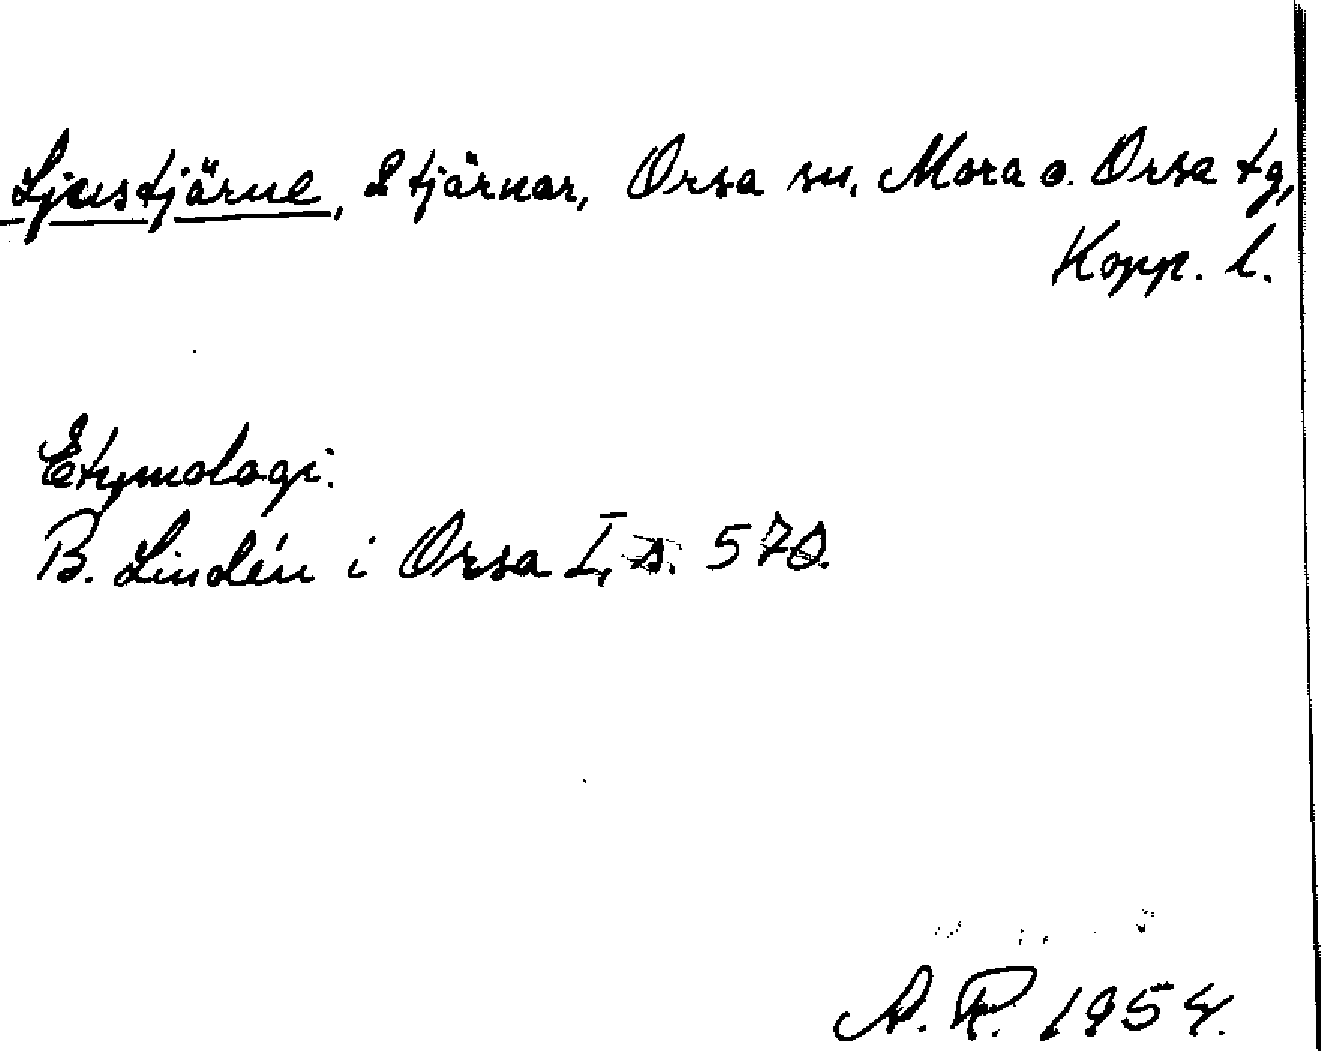 Ljustjärne, 2 tjärnar, Orsa sn, Mora o. Orsa tg,
Kopp. l.
Etymologi.
B. Lindén i Orsa I, s. 570.
A. R. 1954.